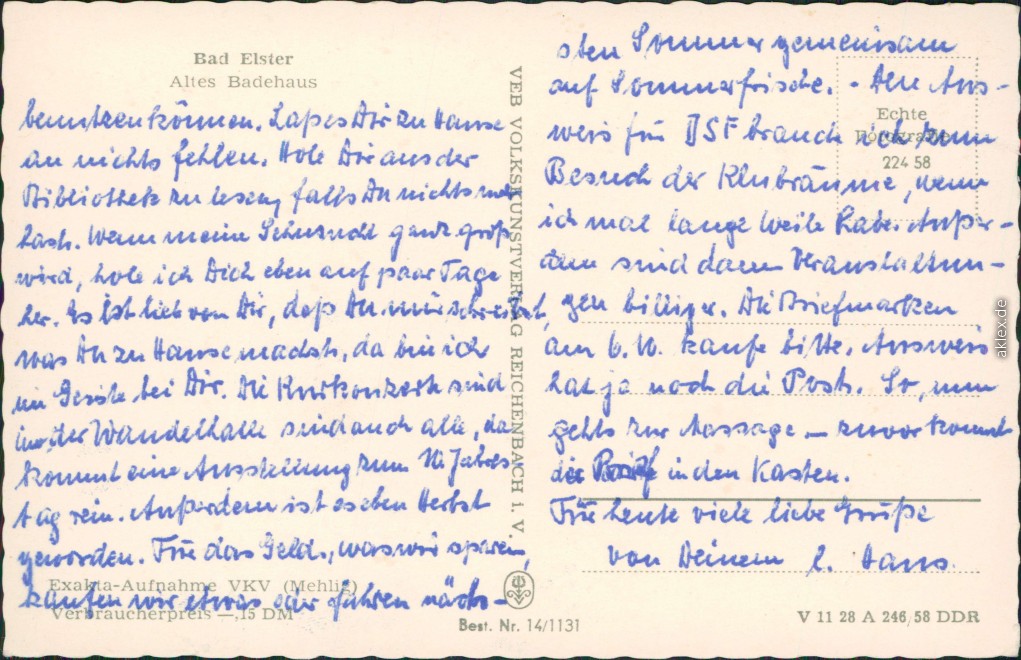 Bad Elster
Altes Badehaus
benutzen können. Laß es Dir zu Hause
an nichts fehlen. Hole Dir aus der
Bibliothek zu lesen, falls Du nichts mehr
hast. Wenn meine Sehnsucht ganz groß
wird, hole ich Dich eben auf paar Tage
her. Es ist lieb von Dir, daß Du mir schreibst,
was Du zu Hause machst, da bin ich
im Geiste bei Dir. Die Kurkonzerte sind
in der Wandelhalle sind auch alle, da
kommt eine Ausstellung zum 10. Jahres
tag rein. Außerdem ist es eben Herbst
geworden. Für das Geld, was wir sparen,
kaufen wir etwas oder fahren näch-
Exakta-Aufnahme VKV (Mehlig)
Verbraucherpreis —,15 DM
VEB VOLKSKUNSTVERLAG REICHENBACH I. V.
Best. Nr. 14/1131
sten Sommer gemeinsam
auf Sommerfrische. - Den Aus-
weis für DSF brauch ich zum
Besuch der Klubräume, wenn
ich mal lange Weile habe. Außer-
dem sind dann Veranstaltun-
gen billiger. Die Briefmarken
am 6.10. kaufe bitte. Ausweis
hat ja noch die Post. So, nun
gehts zur Massage — zuvor kommt
die in den Kasten.
Für heute viele liebe Grüße
von Deinem l. Hans.
Echte
Fotografie
224 58
V 11 28 A 246/58 DDR
aklex.de